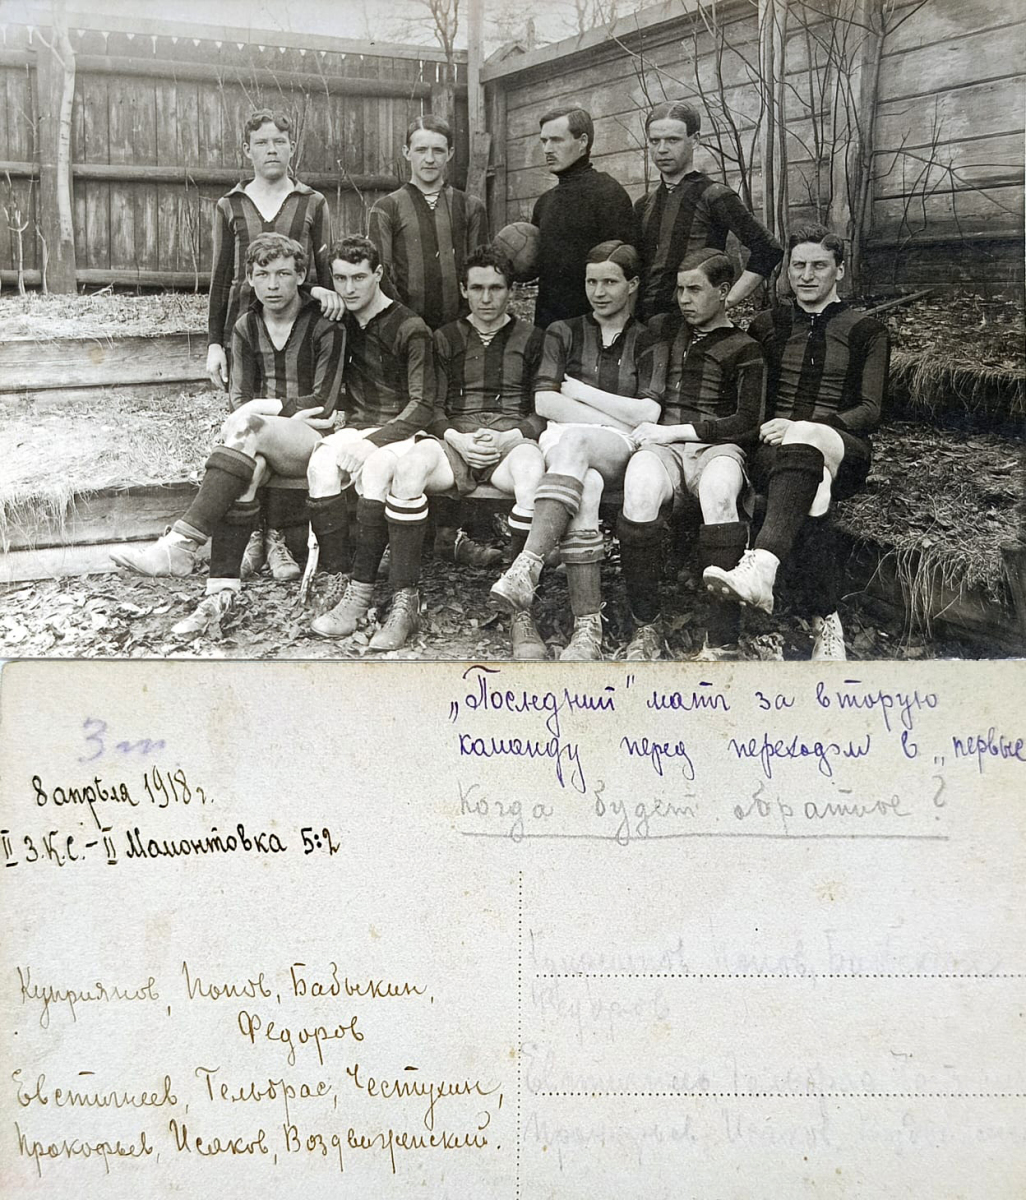 „Последний" матч за вторую
команду перед переходом в „первые
Когда будет обратное?
3
8 апрѣля 1918 г.
II З.К.С. – II Мамонтовка 5:2
Куприянов, Попов, Бабыкин,
Федоров
Евстигнеев, Гельбрас, Честухин,
Прокофьев, Исаков, Воздвиженский.